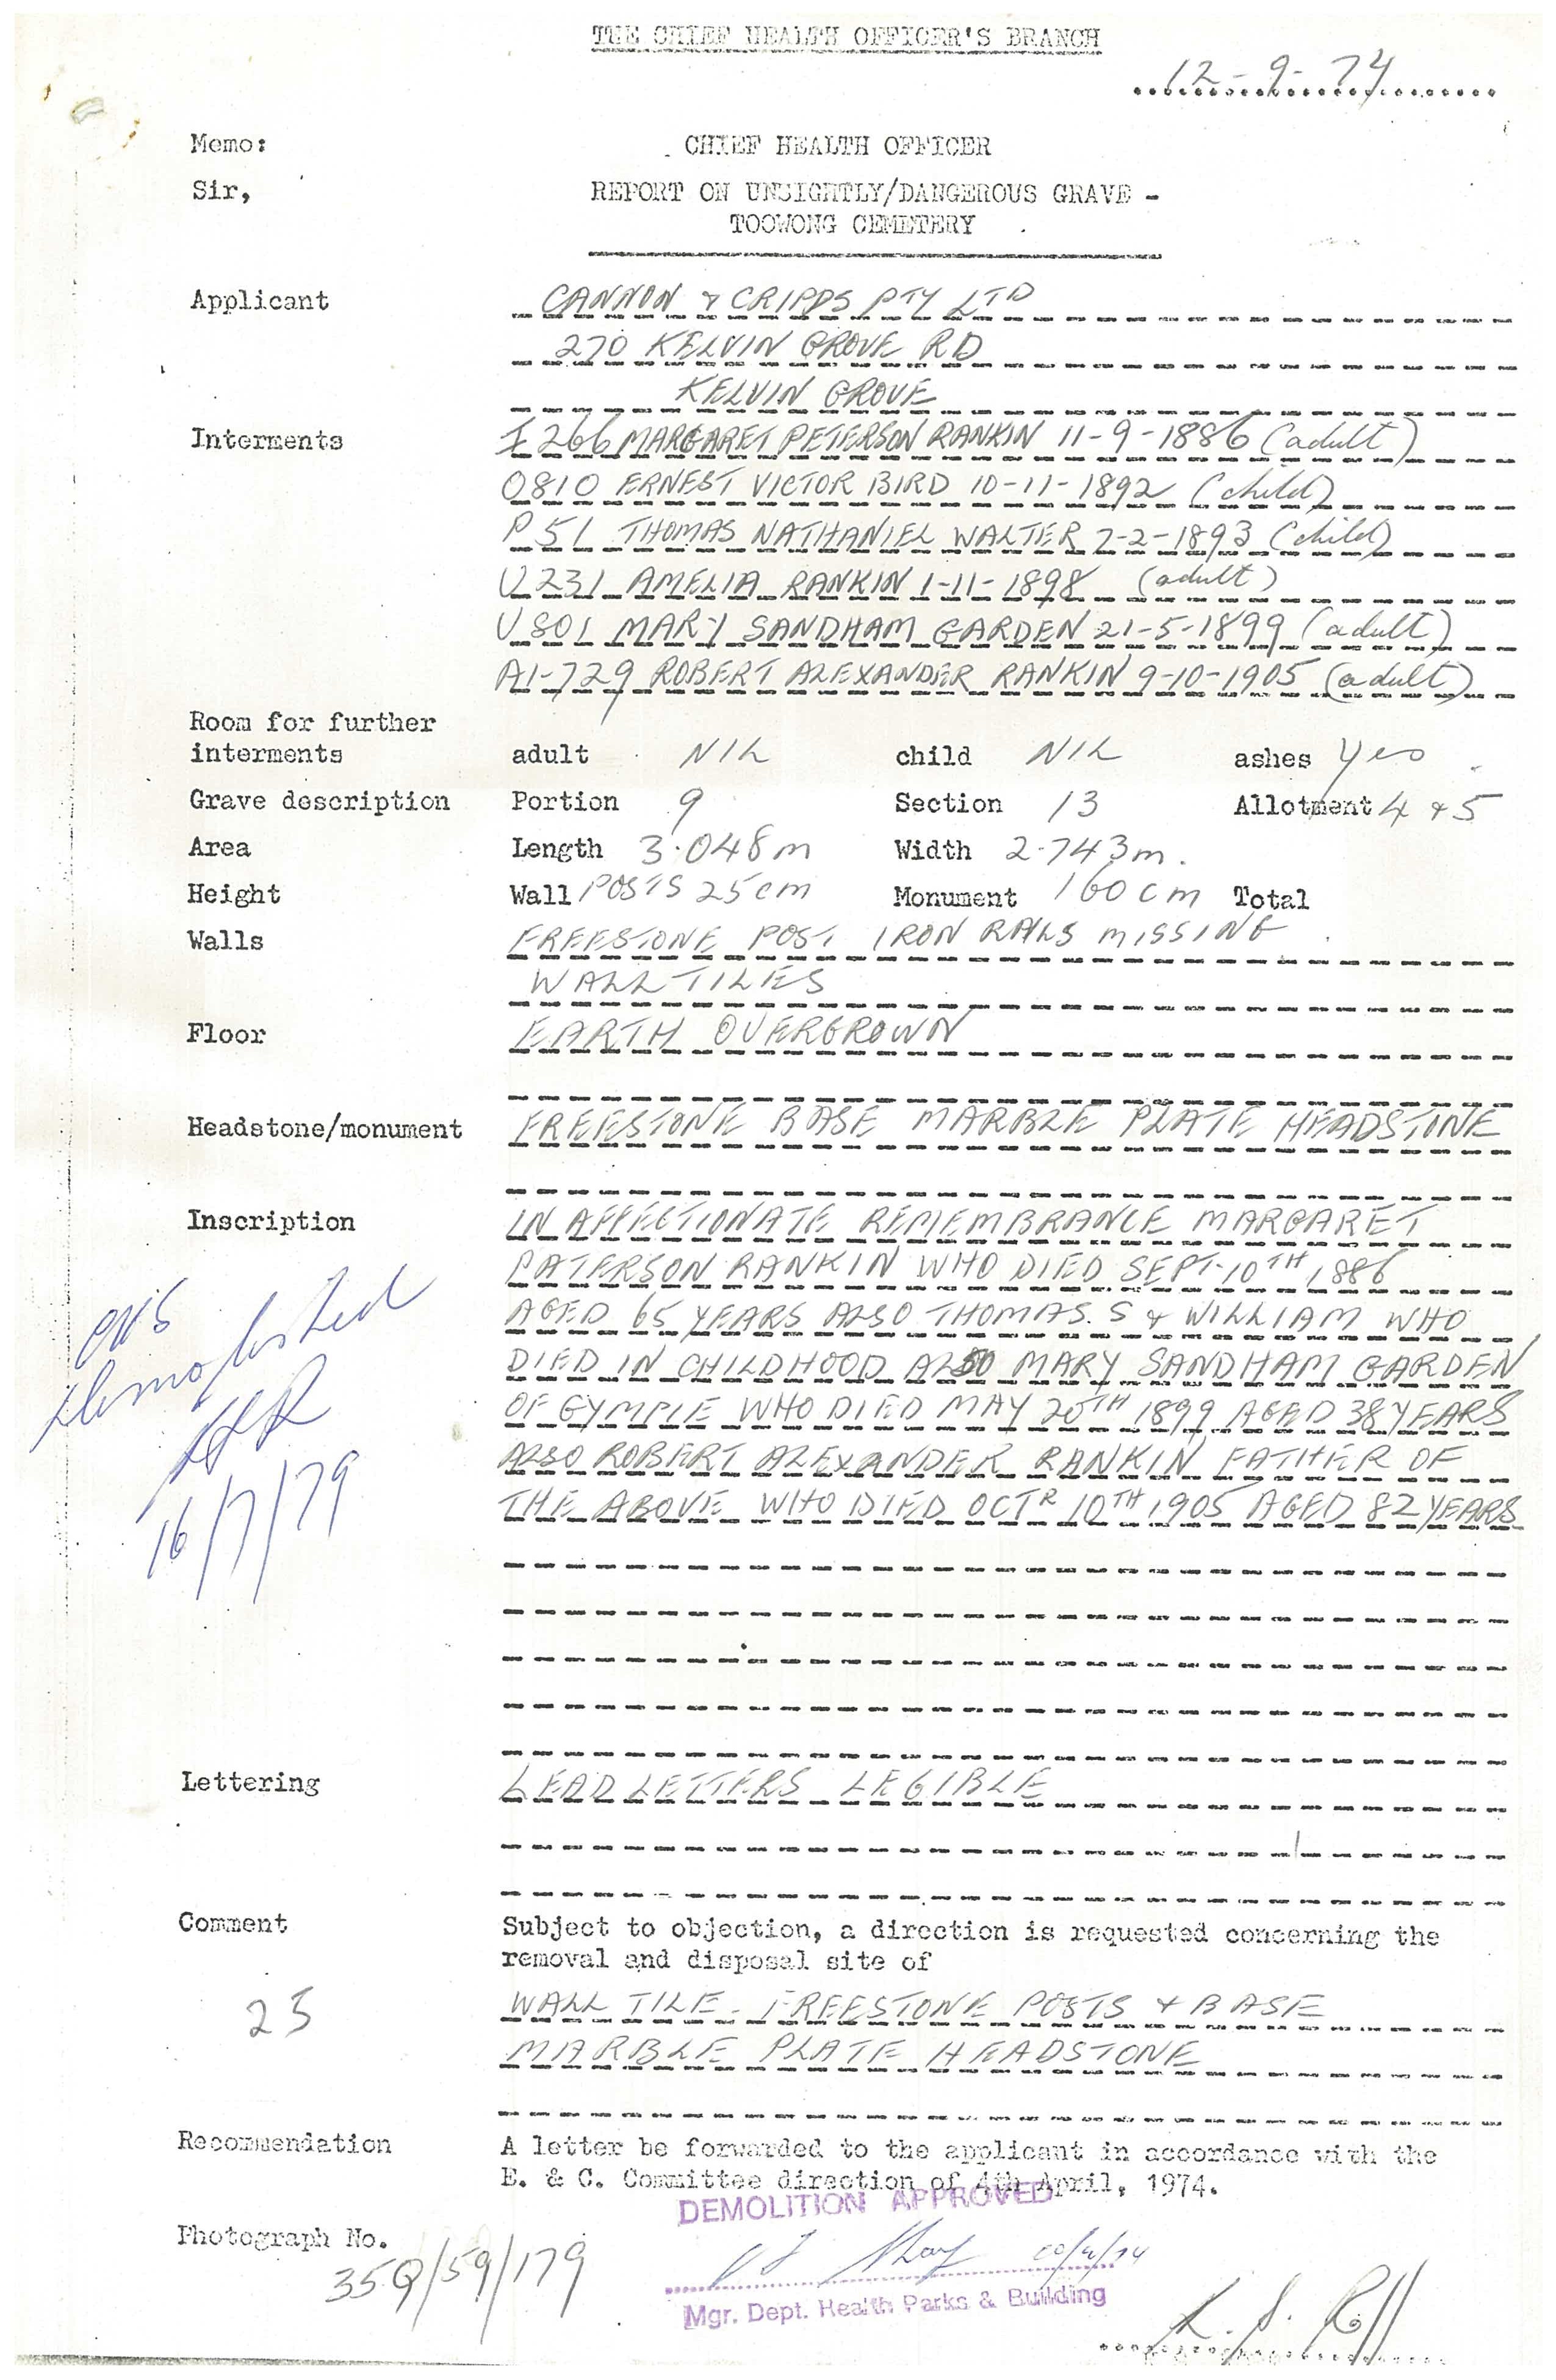 THE CHIEF HEALTH OFFICER'S BRANCH
12-9-74
Memo: CHIEF HEALTH OFFICER
Sir, REPORT ON UNSIGHTLY/DANGEROUS GRAVE -
TOOWONG CEMETERY
Applicant CANNON & CRIPPS PTY LTD
270 KELVIN GROVE RD
KELVIN GROVE
Interments 266 MARGARET PETERSON RANKIN 11-9-1886 (adult)
0810 ERNEST VICTOR BIRD 10-11-1892 (child)
P51 THOMAS NATHANIEL WALTER 7-2-1893 (child)
U231 AMELIA RANKIN 1-11-1898 (adult)
U801 MARY SANDHAM GARDEN 21-5-1899 (adult)
A1-729 ROBERT ALEXANDER RANKIN 9-10-1905 (adult)
Room for further
interments adult NIL child NIL ashes yes
Grave description Portion 9 Section 13 Allotment 4 & 5
Area Length 3.048m Width 2.743m.
Height Wall POSTS 25cm Monument 160cm Total
Walls FREESTONE POST IRON RAILS MISSING
WALL TILES
Floor EARTH OVERGROWN
Headstone/monument FREESTONE BASE MARBLE PLATE HEADSTONE
Inscription IN AFFECTIONATE REMEMBRANCE MARGARET
PATERSON RANKIN WHO DIED SEPT. 10TH 1886
AGED 65 YEARS ALSO THOMAS. S & WILLIAM WHO
DIED IN CHILDHOOD ALSO MARY SANDHAM GARDEN
OF GYMPIE WHO DIED MAY 20TH 1899 AGED 38 YEARS
ALSO ROBERT ALEXANDER RANKIN FATHER OF
THE ABOVE WHO DIED OCTR 10TH 1905 AGED 82 YEARS
demolished
16/7/79
Lettering LEAD LETTERS LEGIBLE
Comment Subject to objection, a direction is requested concerning the
removal and disposal site of
25 WALL TILE - FREESTONE POSTS & BASE
MARBLE PLATE HEADSTONE
Recommendation A letter be forwarded to the applicant in accordance with the
E. & C. Committee direction of 4th April, 1974.
DEMOLITION APPROVED
Photograph No.
35Q/59/179
Mgr. Dept. Health Parks & Building